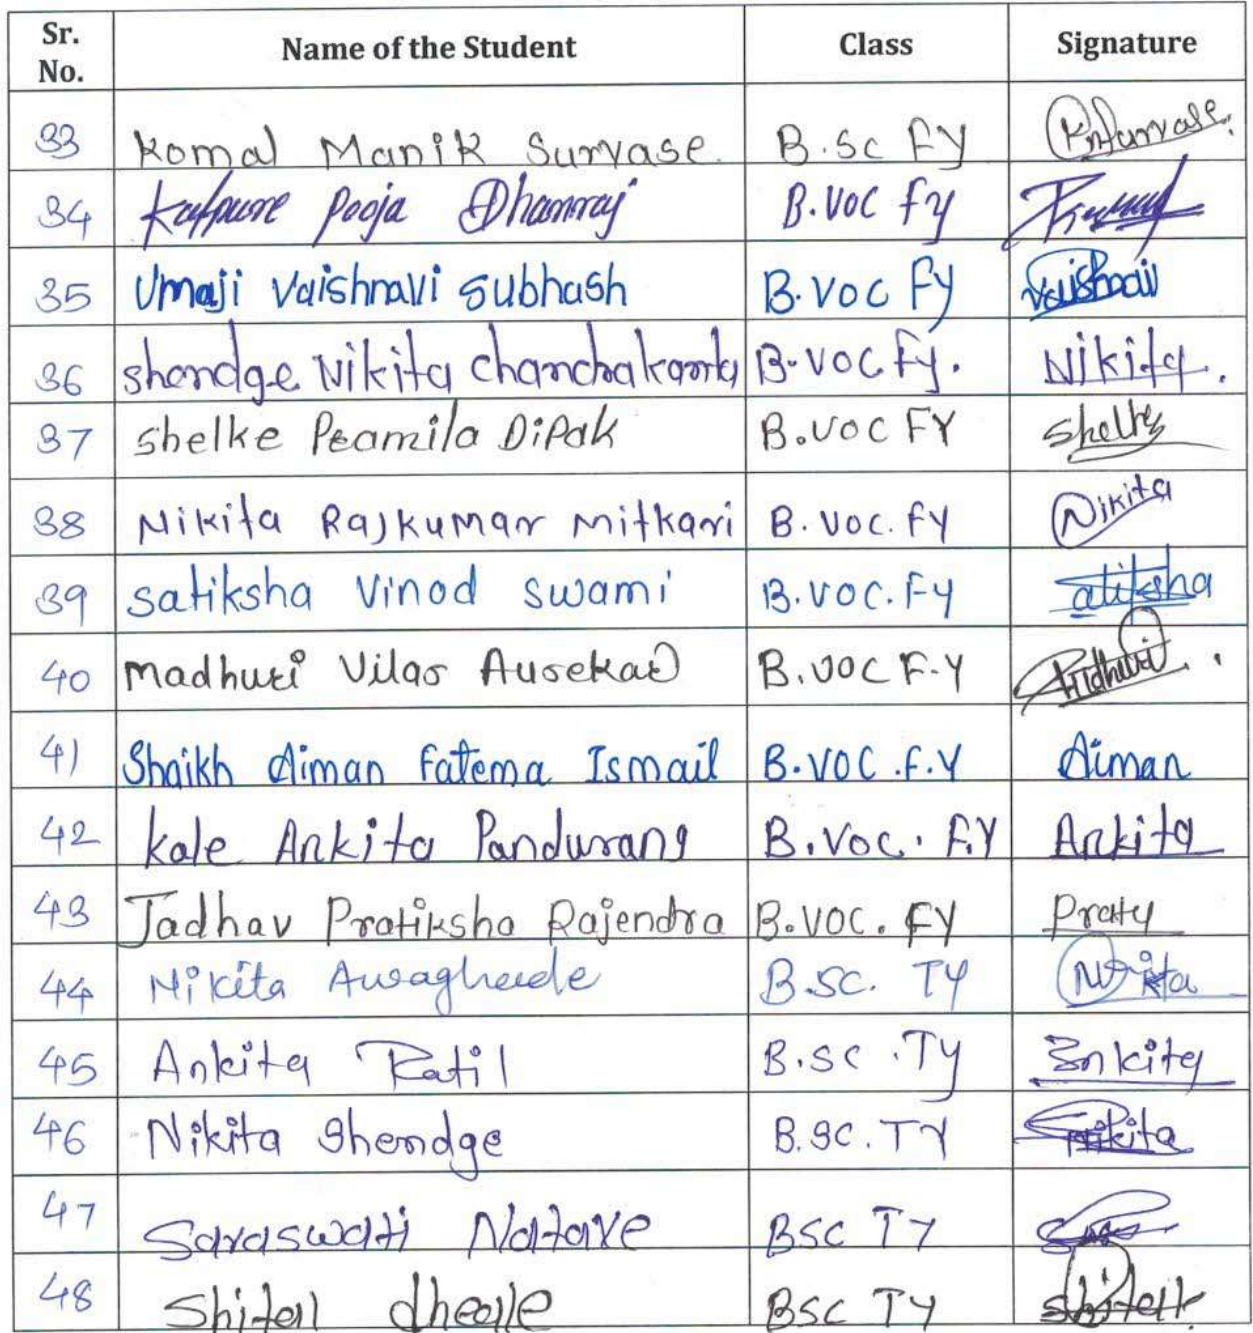 Sr. No. Name of the Student Class Signature
33 Komal Manik Survase. B.Sc FY KMSurvase.
34 Pooja Dhanraj B.VOC fy
35 Umaji Vaishnavi Subhash B.VOC Fy Vaishnavi
36 shendge Nikita chandrakant B.VOC Fy. Nikita.
37 Shelke Pramila Dipak B.VOC FY Shelke
38 Nikita Rajkumar Mitkari B.VOC.FY Nikita
39 Satiksha Vinod Swami B.VOC.FY Satiksha
40 Madhuri Vilas Ausekar B.VOC F.Y
41 Shaikh Aiman Fatema Ismail B.VOC.F.Y Aiman
42 Kale Ankita Pandurang B.Voc. F.Y Ankita
43 Jadhav Pratiksha Rajendra B.VOC. FY Praty
44 Nikita B.SC. TY Nikita
45 Ankita Patil B.SC.Ty Ankita
46 Nikita Shendge B.SC.TY Nikita
47 Saraswati Natave BSC TY
48 BSC TY